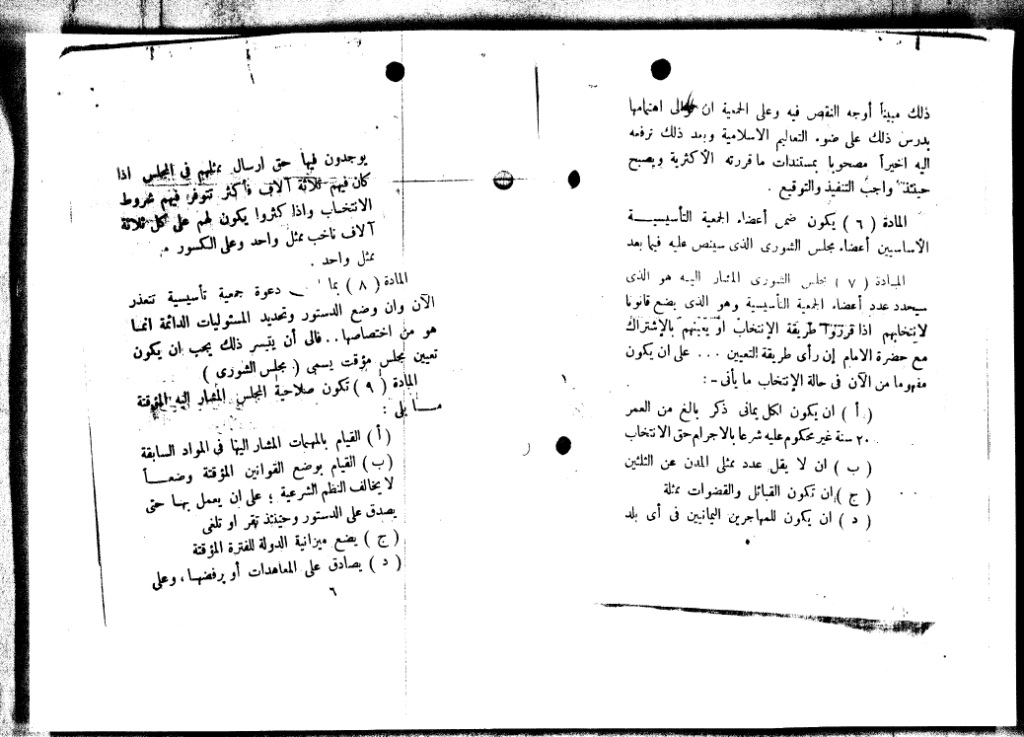 ذلك مبيناً أوجه النقص فيه وعلى الجمعية ان اهتمامها
بدرس ذلك على ضوء التعاليم الاسلامية وبعد ذلك ترفعه
اليه اخيراً مصحوبا بمستندات ما قررته الأكثرية ويصبح
حينئذ واجب التنفيذ والتوقيع .
المادة ( ٦ ) يكون ضمن أعضاء الجمعية التأسيسية
الأساسيين أعضاء مجلس الشورى الذى سينص عليه فيما بعد
المادة ( ٧ ) مجلس الشورى المشار اليه هو الذى
سيحدد عدد أعضاء الجمعية التأسيسية وهو الذى يضع قانونا
لانتخابهم اذا قرروا طريقة الإنتخاب أو يعينهم بالإشتراك
مع حضرة الامام إن رأى طريقة التعيين ... على ان يكون
مفهوما من الآن فى حالة الإنتخاب ما يأتى :-
( أ ) ان يكون لكل يمانى ذكر بالغ من العمر
٢٠ سنة غير محكوم عليه شرعا بالاجرام حق الانتخاب
( ب ) ان لا يقل عدد ممثلى المدن عن الثلثين
( ج ) ان تكون القبائل والقضوات ممثلة
( د ) ان يكون للمهاجرين اليمانيين فى أى بلد
يوجدون فيها حق ارسال ممثلهم فى المجلس اذا
كان فيهم ثلاثة آلاف فأكثر تتوفر فيهم شروط
الانتخاب واذا كثروا يكون لهم على كل ثلاثة
آلاف ناخب ممثل واحد وعلى الكسور
ممثل واحد .
المادة ( ٨ ) بما دعوة جمعية تأسيسية تتعذر
الآن وان وضع الدستور وتحديد المسئوليات الدائمة انما
هو من اختصاصها .. فالى أن يتيسر ذلك يجب ان يكون
تعيين مجلس مؤقت يسمى ( مجلس الشورى )
المادة ( ٩ ) تكون صلاحية المجلس المشار اليه المؤقتة
مـا يلى :
( أ ) القيام بالمهمات المشار اليها فى المواد السابقة
( ب ) القيام بوضع القوانين المؤقتة وضعـاً
لا يخالف النظم الشرعية ؛ على ان يعمل بهـا حتى
يصدق على الدستور وحينئذ تقر او تلغى
( ج ) يضع ميزانية الدولة للفترة المؤقتة
( د ) يصادق على المعاهدات أو يرفضهـا ، وعلى
٦